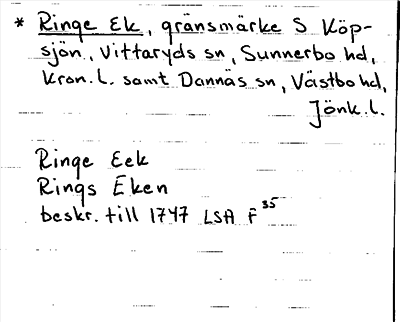 * Ringe Ek, gränsmärke S Köp-
sjön, Vittaryds sn, Sunnerbo hd,
Kron. l. samt Dannäs sn, Västbo hd,
Jönk. l.
Ringe Eek
Rings Eken
beskr. till 1747 LSA F 35